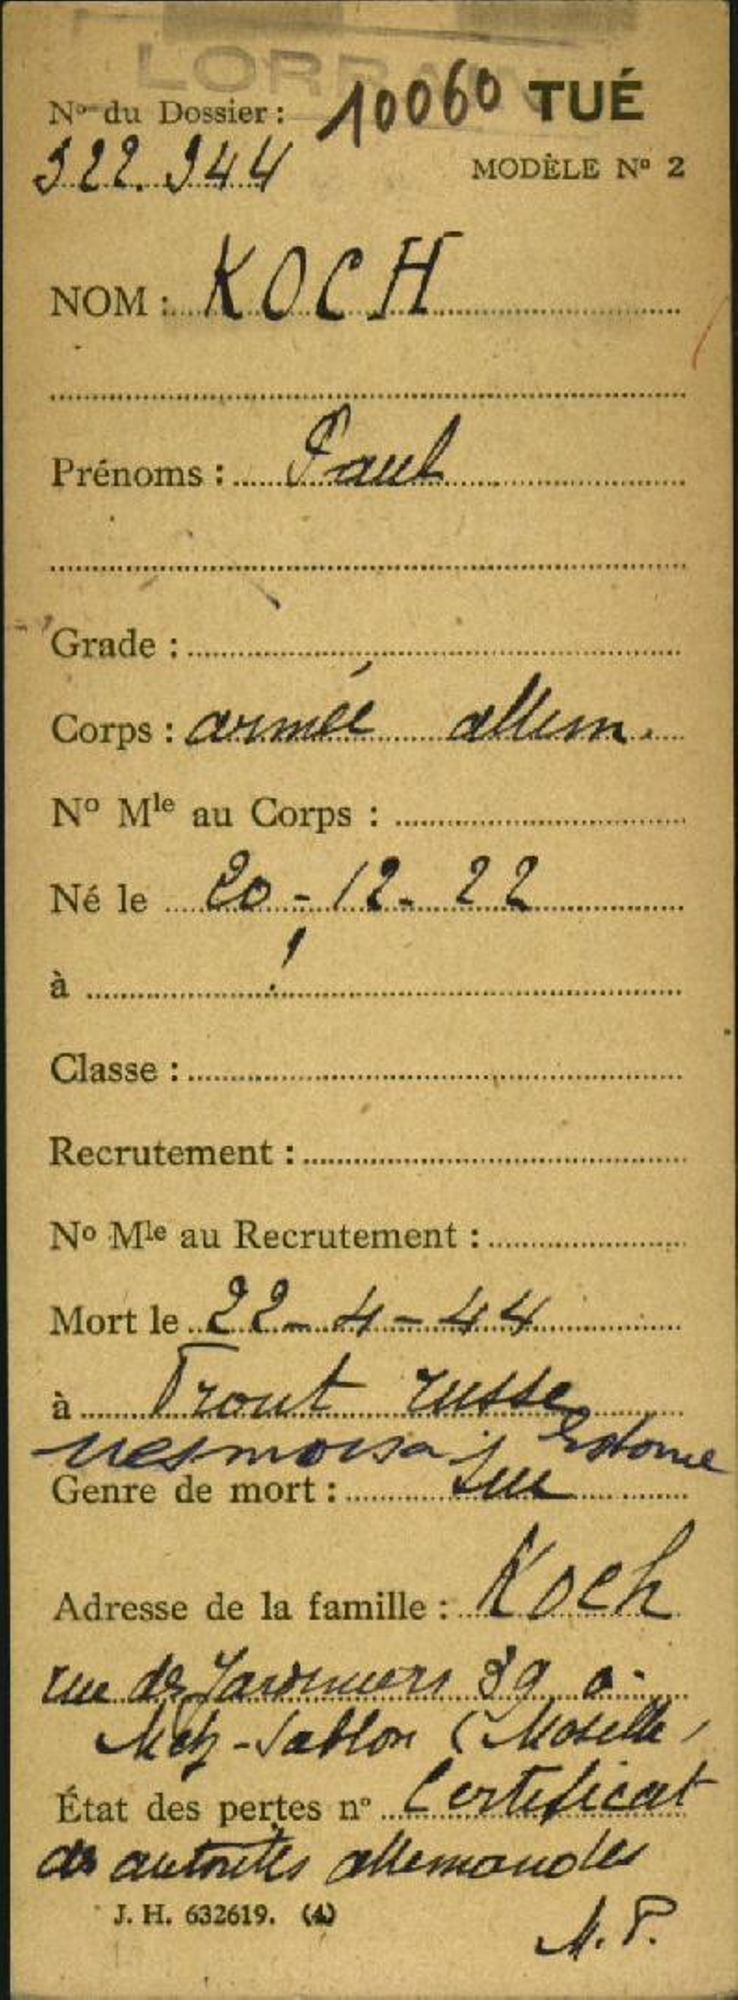 LORRAIN
N° du Dossier : 10060 TUÉ
322.944 MODÈLE N° 2
NOM : KOCH
Prénoms : Paul
Grade :
Corps : armée allem.
N° Mle au Corps :
Né le 20-12-22
à ?
Classe :
Recrutement :
N° Mle au Recrutement :
Mort le 22-4-44
à Front russe
Estonie
Genre de mort : tué
Adresse de la famille : Koch
rue des Jardiniers 39 a.
Metz-Sablon (Moselle)
État des pertes n° Certificat
des autorités allemandes
J. H. 632619. (4)
M. P.